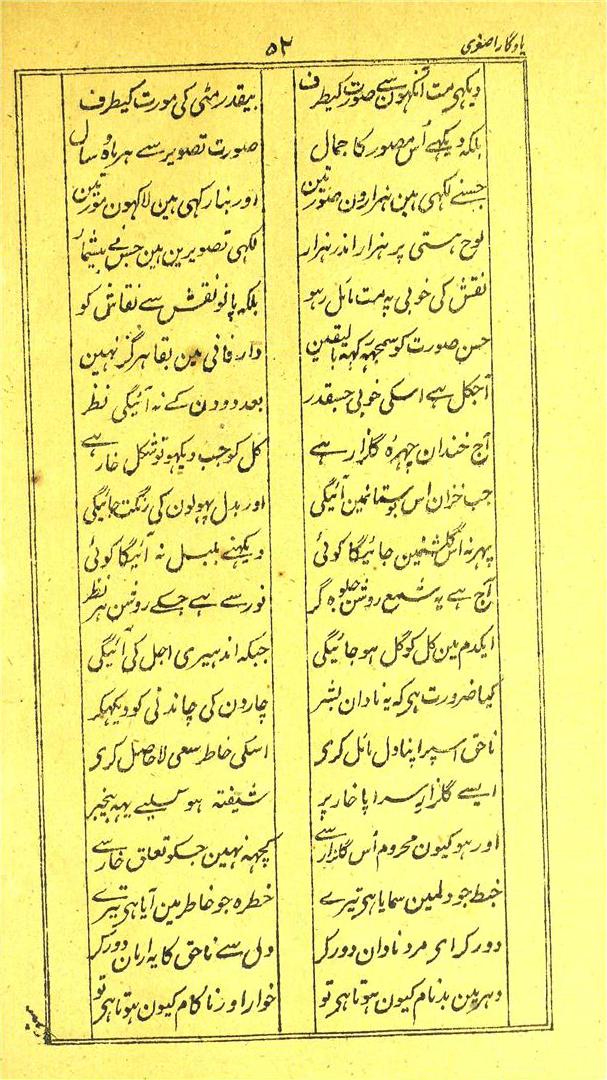 یادگار اصغری
۵۲
دیکھی مت آنکھون سے صورت کیطرف بیقدر مٹی کی مورت کیطرف
بلکہ دیکھے اُس مصور کا جمال صورت تصویر سے ہر ماہ و سال
جسنے لکھی ہین ہزارون صورتین اور بنا رکھی ہین لاکھون مورتین
لوح ہستی پر ہزار اندر ہزار لکھی تصویرین ہین جس نے بیشمار
نقش کی خوبی پہ مت مائل رہو بلکہ پانو نقش سے نقاش کو
حسن صورت کو سمجھہ کہہ بالیقین دار فانی مین بقا ہرگز نہین
آجکل ہے اسکی خوبی جسقدر بعد دو دن کے نہ آئیگی نظر
آج خندان چہرۂ گلزار ہے کل کو جب دیکھو تو شکل خار ہے
جب خزان اس بوستانمین آئیگی اور بدل پھولون کی رنگت جائیگی
پھر نہ اس گلشنمین جائیگا کوئی دیکھنے بلبل نہ آئیگا کوئی
آج ہے یہ شمع روشن جلوہ گر نور سے ہے جسکے روشن ہر نظر
ایکدم مین کل کو گل ہو جائیگی جبکہ اندہیری اجل کی آئیگی
کیا ضرورت ہی کہ یہ نادان بشر چار دن کی چاندنی کو دیکھکر
ناحق اسپر اپنا دل مائل کری اسکی خاطر سعی لاحاصل کری
ایسے گلزار سراپا خار پر شیفتہ ہو لیے یہہ بیخبر
اور ہو کیون محروم اُس گلزار سے کچھہ نہین جسکو تعلق خار سے
خبط جو دلمین سمایا ہی تیرے خطرہ جو خاطر مین آیا ہی تیرے
دور کر ای مرد نادان دور کر دلی سے ناحق کا یہ ارمان دور کر
دہر مین بدنام کیون ہوتا ہی تو خوار اور ناکام کیون ہوتا ہی تو